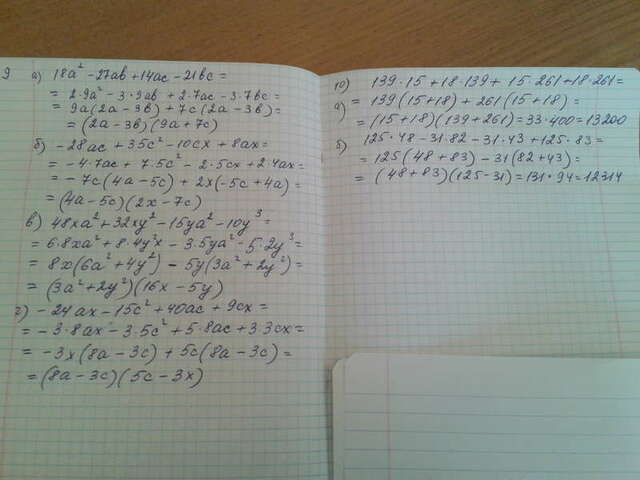 9 а) 18a² - 27ab + 14ac - 21bc =
= 2·9a² - 3·9ab + 2·7ac - 3·7bc =
= 9a(2a - 3b) + 7c(2a - 3b) =
= (2a - 3b)(9a + 7c)
б) - 28ac + 35c² - 10cx + 8ax =
= - 4·7ac + 7·5c² - 2·5cx + 2·4ax =
= - 7c(4a - 5c) + 2x(-5c + 4a) =
= (4a - 5c)(2x - 7c)
в) 48xa² + 32xy² - 15ya² - 10y³ =
= 6·8xa² + 8·4y²x - 3·5ya² - 5·2y³ =
= 8x(6a² + 4y²) - 5y(3a² + 2y²) =
= (3a² + 2y²)(16x - 5y)
г) - 24ax - 15c² + 40ac + 9cx =
= - 3·8ax - 3·5c² + 5·8ac + 3·3cx =
= - 3x(8a - 3c) + 5c(8a - 3c) =
= (8a - 3c)(5c - 3x)
10) 139·15 + 18·139 + 15·261 + 18·261 =
а) = 139(15+18) + 261(15+18) =
= (15+18)(139+261) = 33·400 = 13200
б) 125·48 - 31·82 - 31·43 + 125·83 =
= 125(48+83) - 31(82+43) =
= (48+83)(125-31) = 131·94 = 12314